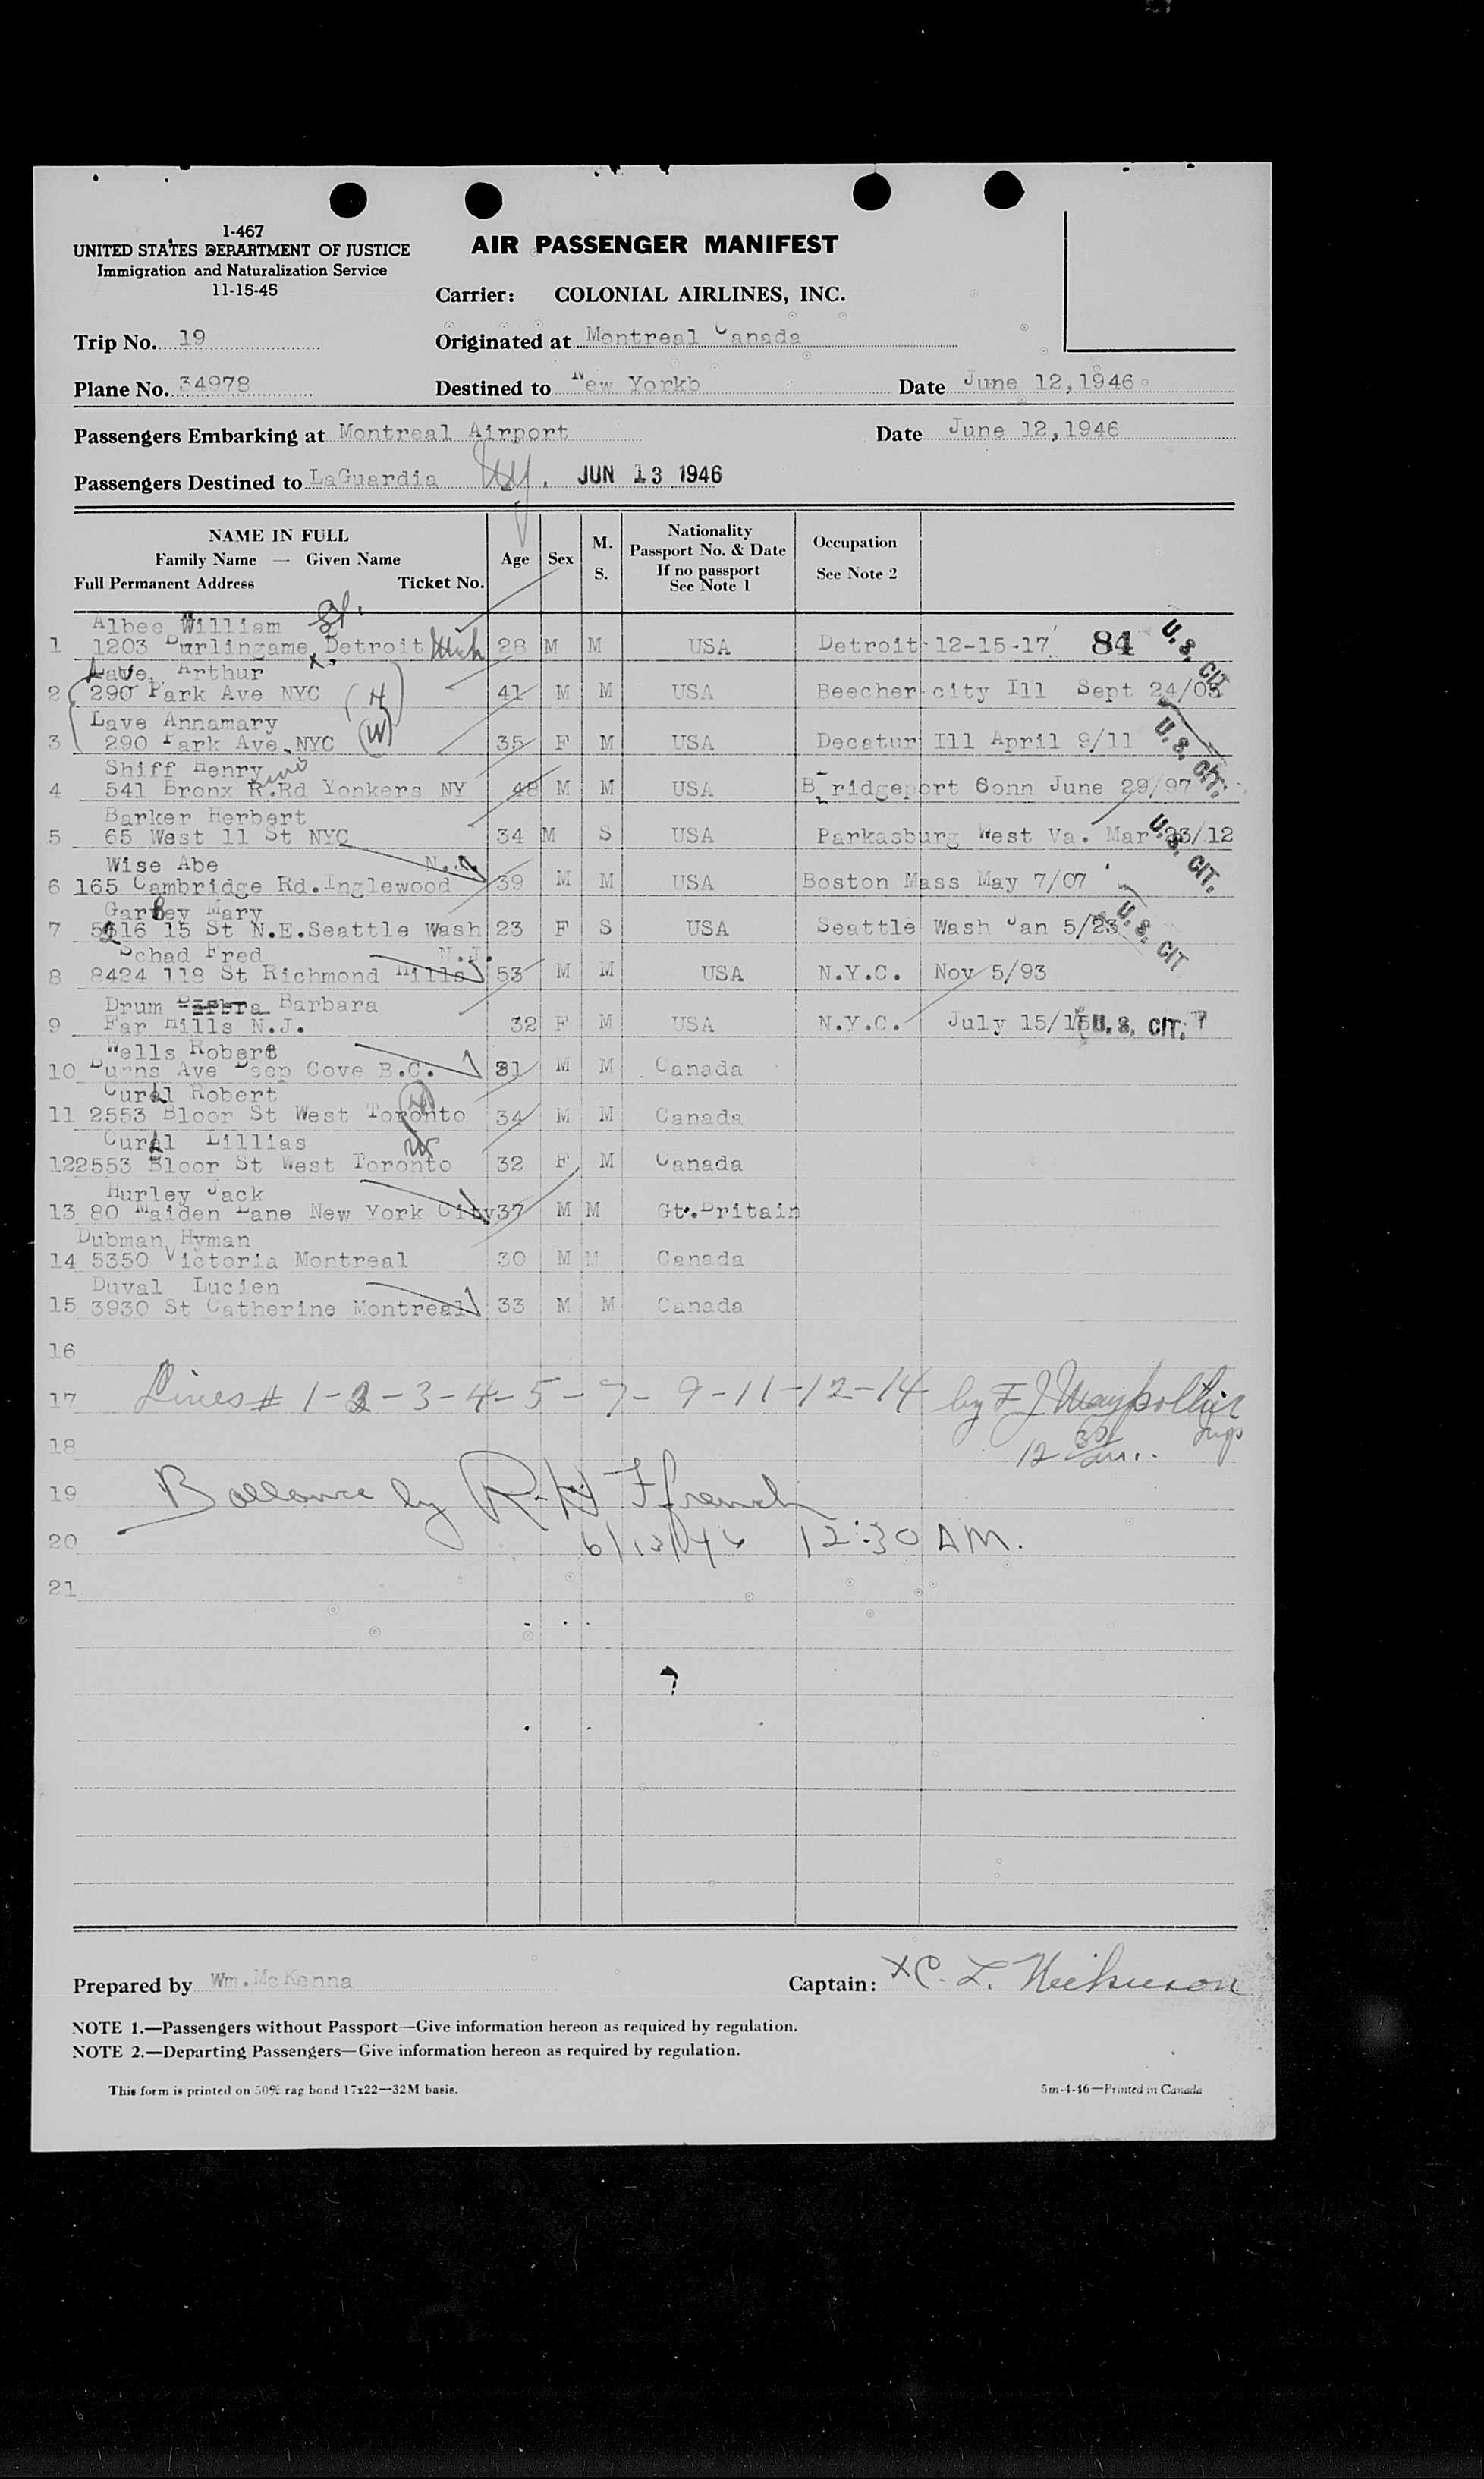 1-467
UNITED STATES DEPARTMENT OF JUSTICE
Immigration and Naturalization Service
11-15-45
AIR PASSENGER MANIFEST
Carrier: COLONIAL AIRLINES, INC.
Trip No. 19
Originated at Montreal Canada
Plane No. 34978
Destined to New Yorkb
Date June 12,1946
Passengers Embarking at Montreal Airport
Date June 12,1946
Passengers Destined to LaGuardia NY. JUN 13 1946
NAME IN FULL
Family Name — Given Name
Full Permanent Address Ticket No.
Age Sex M. S.
Nationality
Passport No. & Date
If no passport
See Note 1
Occupation
See Note 2
Albee William St.
1 1203 Burlingame Detroit Mich 28 M M USA Detroit 12-15-17 84 U. S. CIT
Lave, Arthur
2 290 Park Ave NYC (H) 41 M M USA Beecher city Ill Sept 24/05
Lave Annamary
3 290 Park Ave NYC (W) 35 F M USA Decatur Ill April 9/11 U. S. CIT.
Shiff Henry
4 541 Bronx R.Rd Yonkers NY 48 M M USA Bridgeport Conn June 29/97
Barker Herbert
5 65 West 11 St NYC 34 M S USA Parkasburg West Va. Mar 23/12 U. S. CIT.
Wise Abe N.J.
6 165 Cambridge Rd.Inglewood 39 M M USA Boston Mass May 7/07
Garbey Mary
7 5216 15 St N.E.Seattle Wash 23 F S USA Seattle Wash Jan 5/23 U. S. CIT
Schad Fred N.J.
8 8424 118 St Richmond Hills 53 M M USA N.Y.C. Nov 5/93
Drum Barbara
9 Far Hills N.J. 32 F M USA N.Y.C. July 15/15 U. S. CIT.
Wells Robert
10 Burns Ave Deep Cove B.C. 31 M M Canada
Robert
11 2553 Bloor St West Toronto 34 M M Canada
Lillias
12 2553 Bloor St West Toronto 32 F M Canada
Hurley Jack
13 80 Maiden Lane New York City 37 M M Gt.Britain
Dubman Hyman
14 5350 Victoria Montreal 30 M M Canada
Duval Lucien
15 3930 St Catherine Montreal 33 M M Canada
16
17 Lines # 1-2-3-4-5-7-9-11-12-14 by F J
18 12 30 am.
19 Ballance by R. H Ffrench
20 6/13/46 12:30 AM.
21
Prepared by Wm.McKenna
Captain: X C. L.
NOTE 1.—Passengers without Passport—Give information hereon as required by regulation.
NOTE 2.—Departing Passengers—Give information hereon as required by regulation.
This form is printed on 50% rag bond 17x22—32M basis.
5m-4-46—Printed in Canada